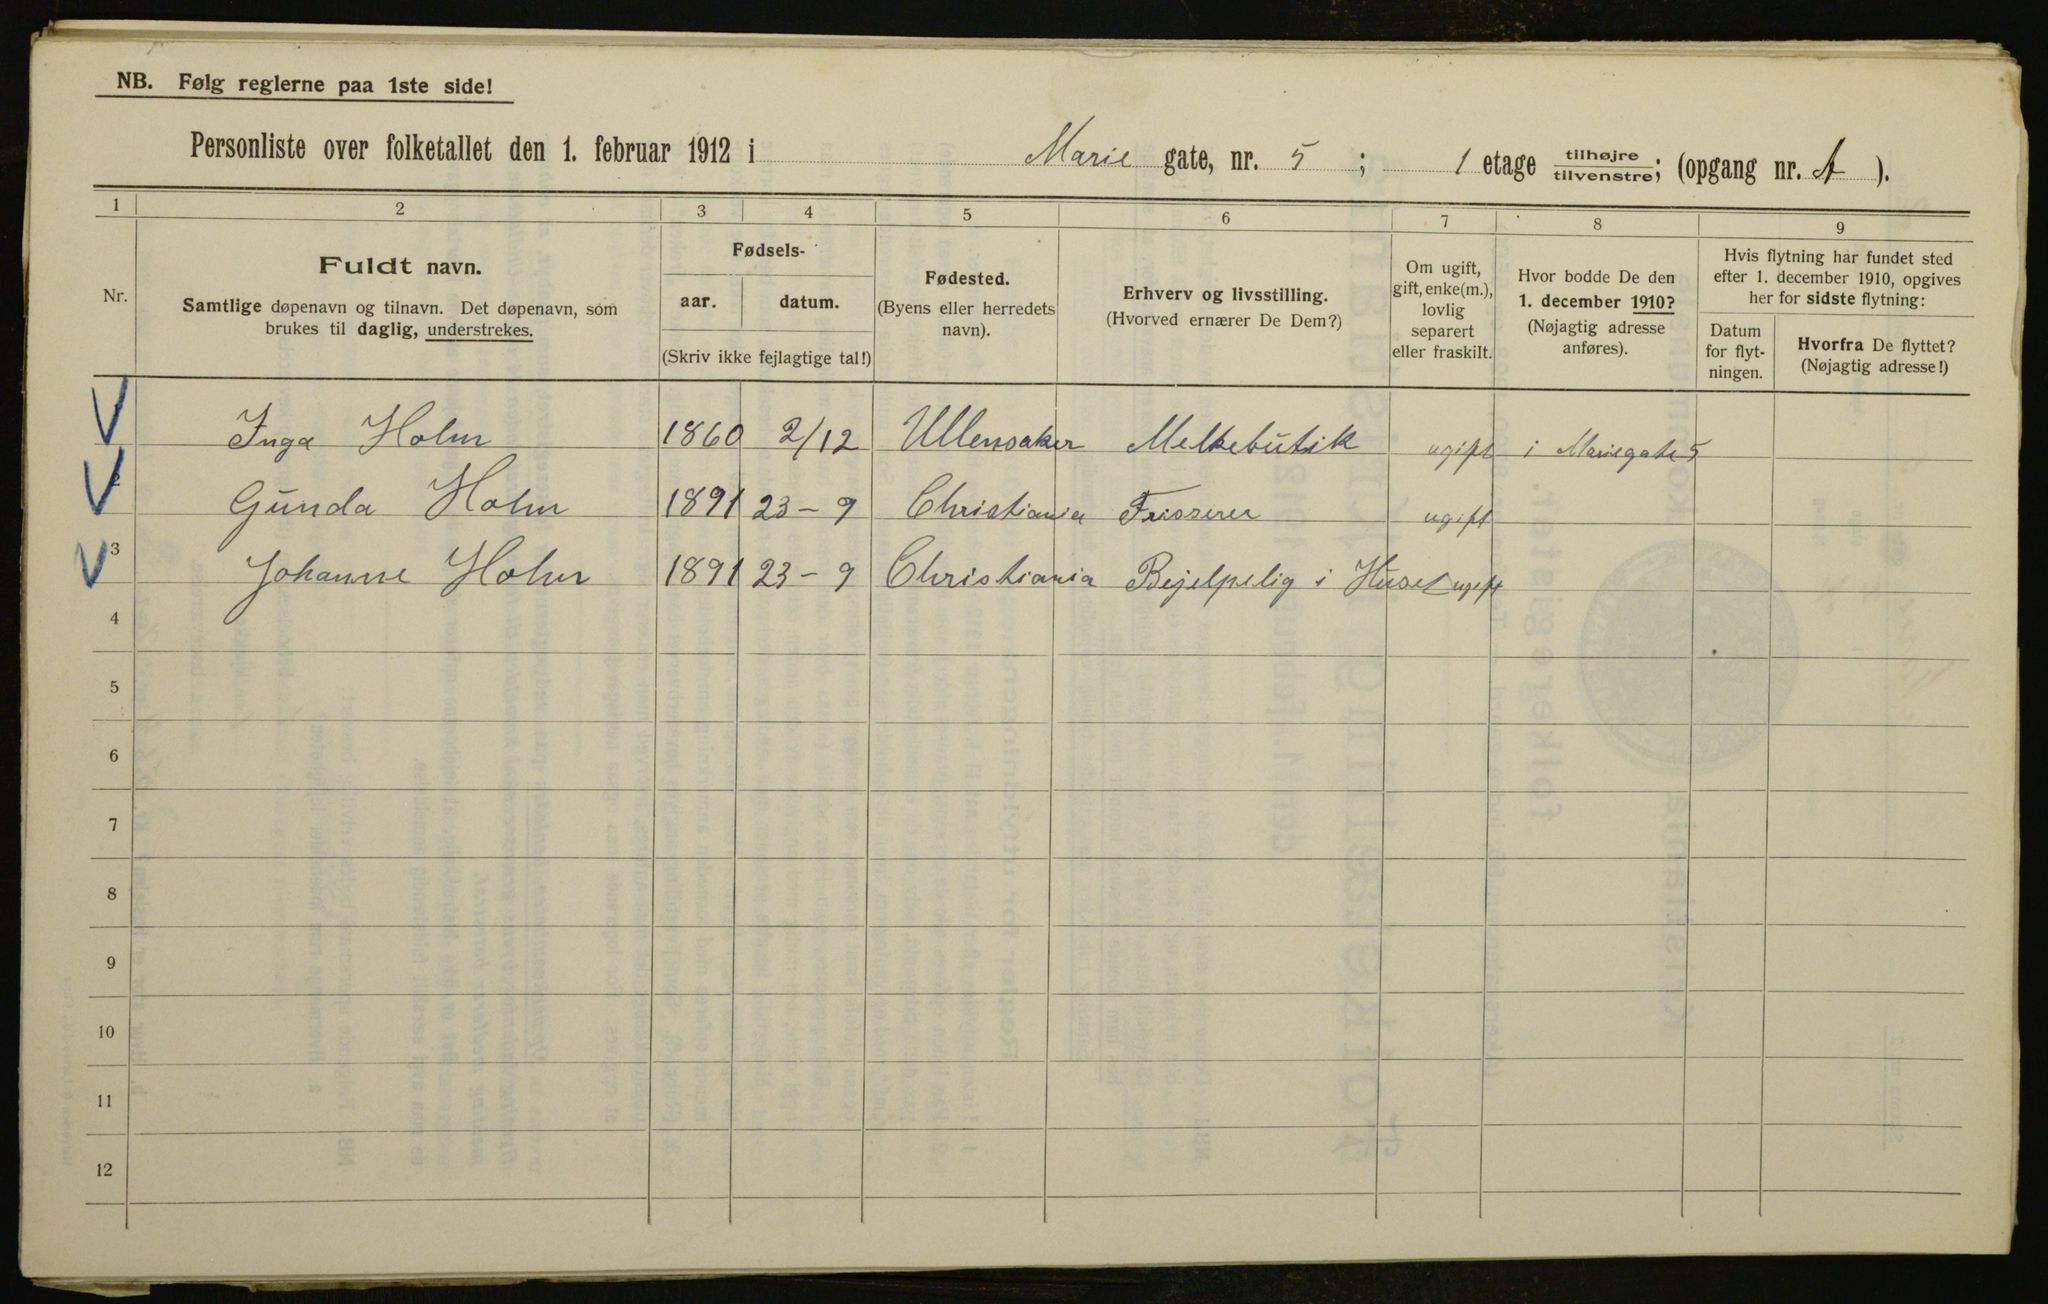 NB. Følg reglerne paa 1ste side!
Personliste over folketallet den 1. februar 1912 i Marie gate, nr. 5 ; 1 etage tilhøjre/tilvenstre; (opgang nr. A ).
1 2 3 4 5 6 7 8 9
Nr.
Fuldt navn.
Samtlige døpenavn og tilnavn. Det døpenavn, som
brukes til daglig, understrekes.
Fødsels-
aar. datum.
(Skriv ikke fejlagtige tal!)
Fødested.
(Byens eller herredets
navn).
Erhverv og livsstilling.
(Hvorved ernærer De Dem?)
Om ugift,
gift, enke(m.),
lovlig
separert
eller fraskilt.
Hvor bodde De den
1. december 1910?
(Nøjagtig adresse
anføres).
Hvis flytning har fundet sted
efter 1. december 1910, opgives
her for sidste flytning:
Datum
for flyt-
ningen.
Hvorfra De flyttet?
(Nøjagtig adresse!)
Inga Holm 1860 2/12 Ullensaker Melkebutik ugift i Mariegate 5
Gunda Holm 1891 23-9 Christiania Frisserer ugift
3 Johanne Holm 1891 23-9 Christiania Bejelpelig i Huset ugift
4
5
6
7
8
9
10
11
12